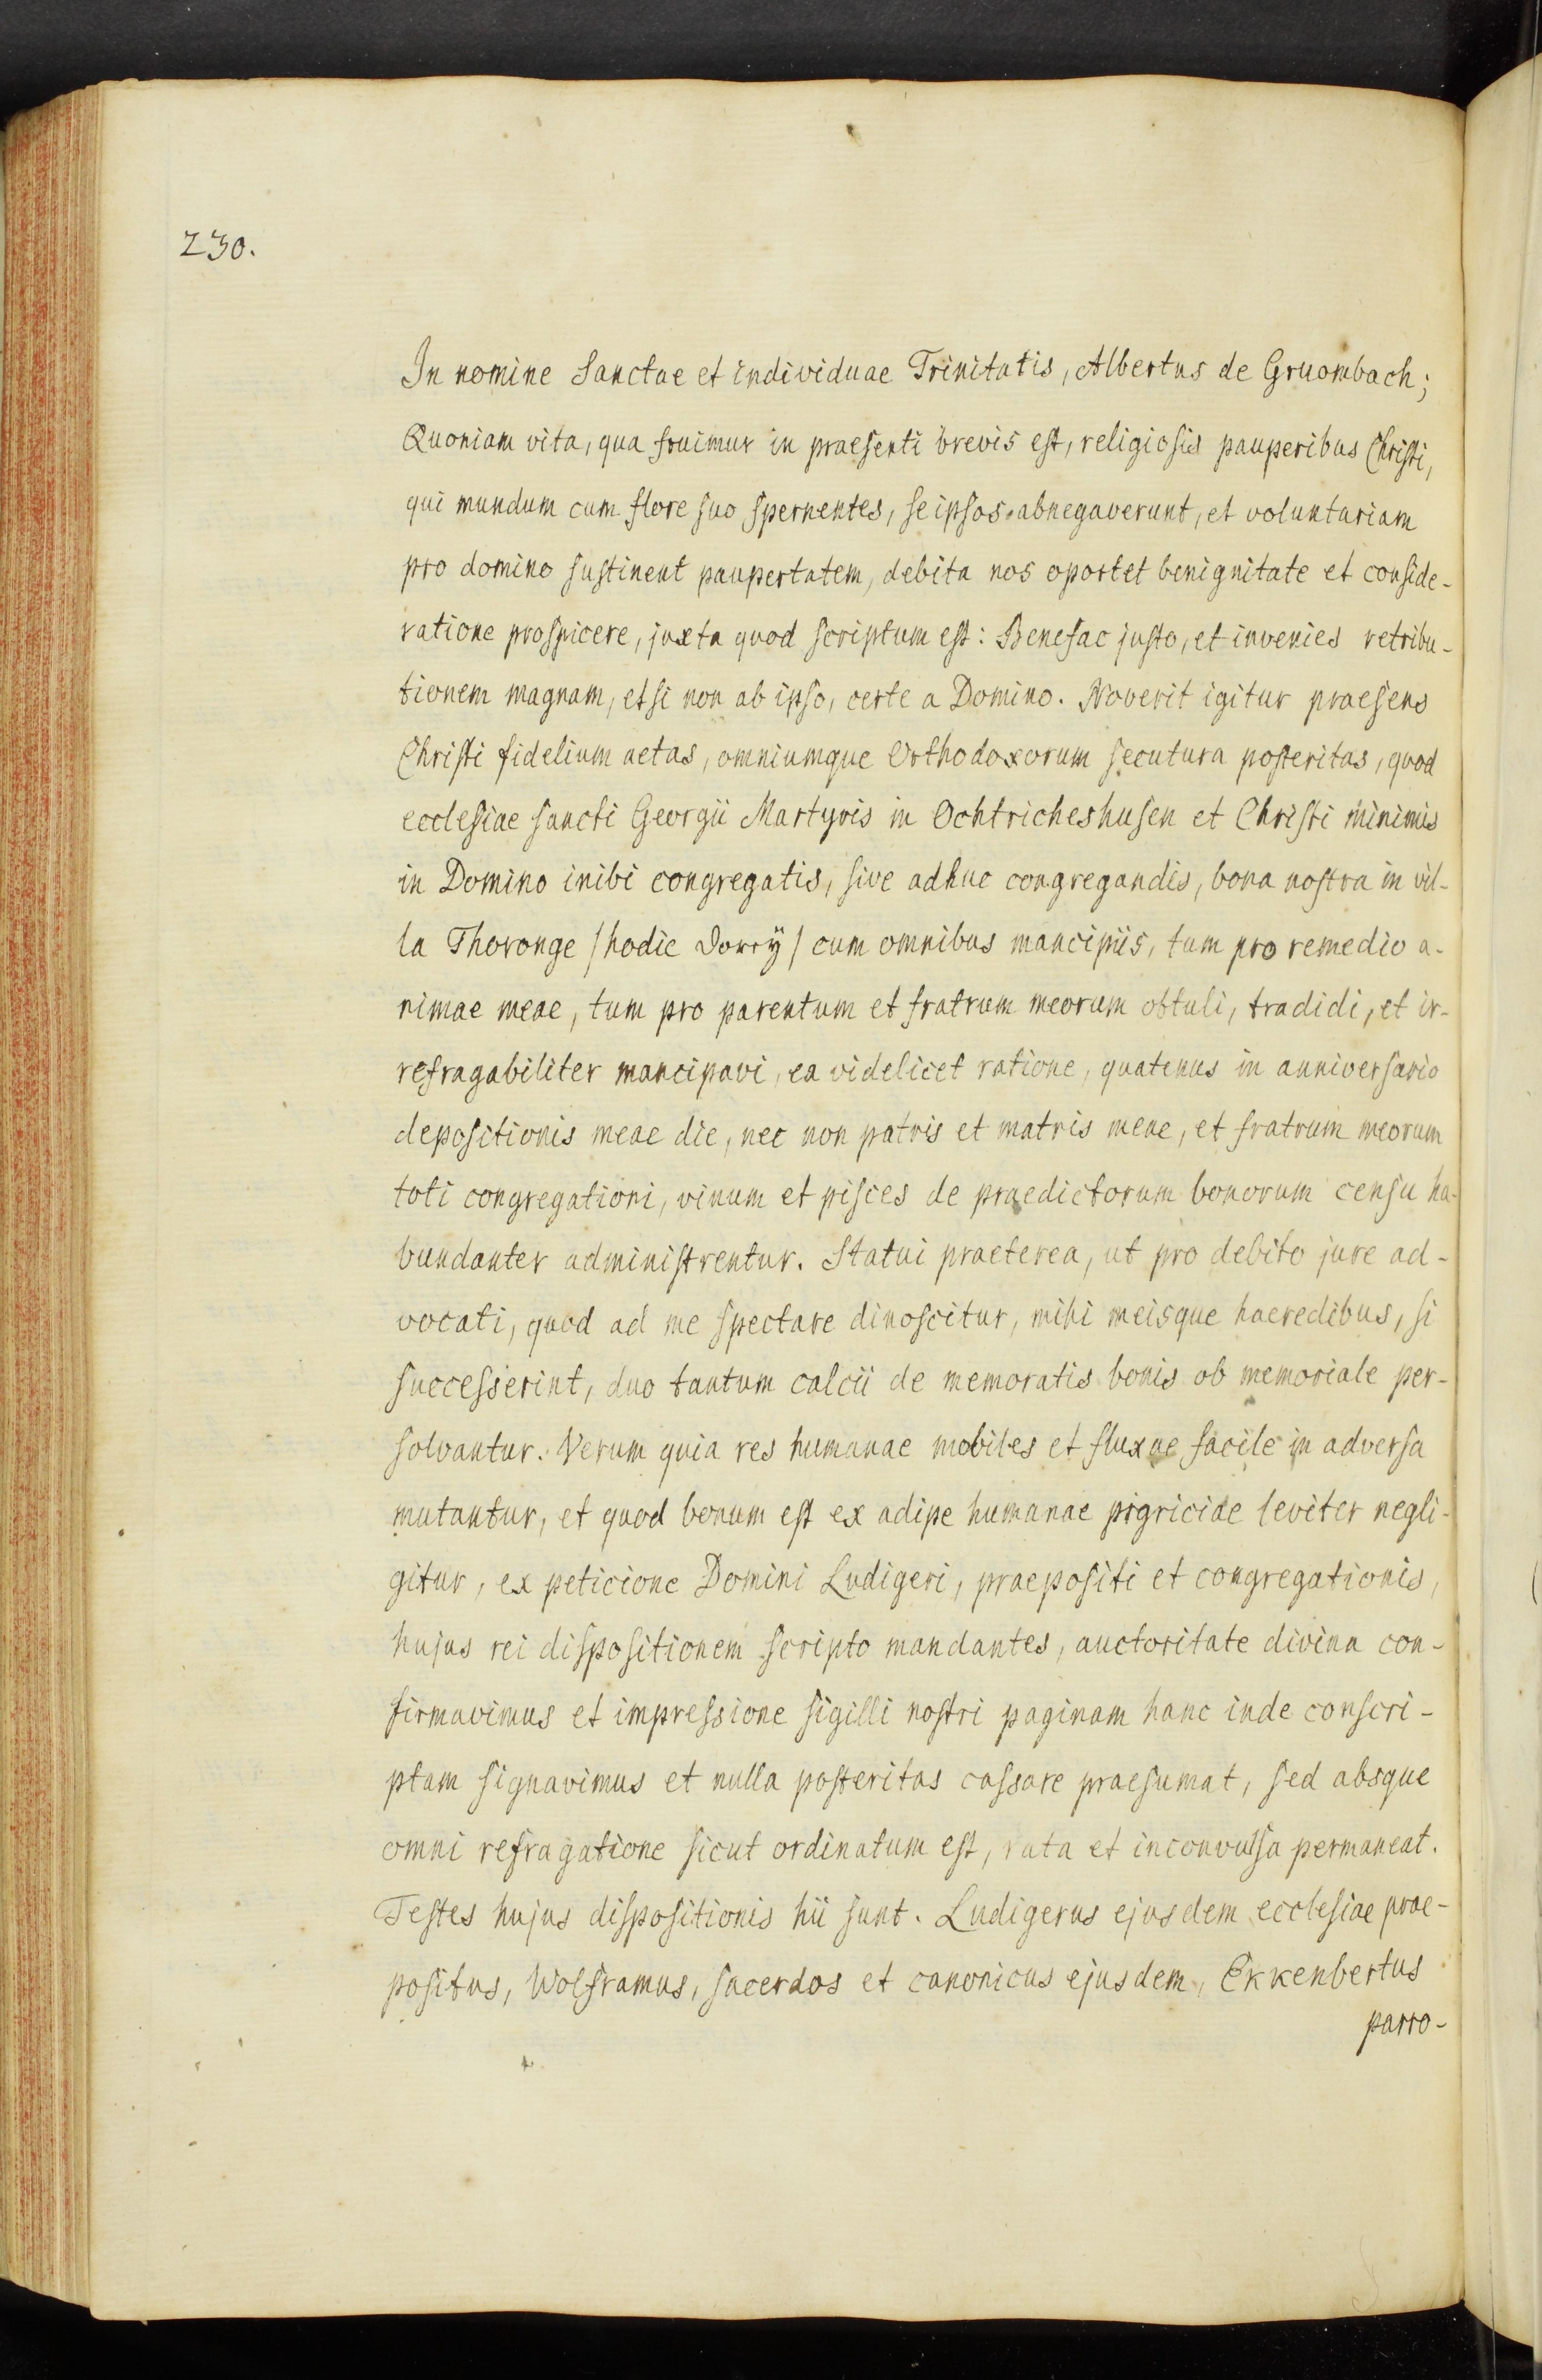 230.
In nomine Sanctae et individuae Trinitatis, Albertus de Gruombach;
Quoniam vita, qua fruimur in praesenti brevis est, religiosis pauperibus Christi,
qui mundum cum flore suo spernentes, seipsos abnegaverunt, et voluntariam
pro domino sustinent paupertatem, debita nos oportet benignitate et conside-
ratione prospicere, juxta quod scriptum est: Benefac justo, et invenies retribu-
tionem magnam, etsi non ab ipso, certe a Domino. Noverit igitur praesens
Christi fidelium aetas, omniumque Orthodoxorum secutura posteritas, quod
ecclesiae sancti Georgii Martyris in Ochtricheshusen et Christi minimis
in Domino inibi congregatis, sive adhuc congregandis, bona nostra in vil-
la Thoronge /hodie Dorrÿ/ cum omnibus mancipiis, tum pro remedio a-
nimae meae, tum pro parentum et fratrum meorum obtuli, tradidi, et ir-
refragabiliter mancipavi, ea videlicet ratione, quatenus in anniversario
depositionis meae die, nec non patris et matris meae, et fratrum meorum
toti congregationi, vinum et pisces de praedictorum bonorum censu ha-
bundanter administrentur. Statui praeterea, ut pro debito jure ad-
vocati, quod ad me spectare dinoscitur, mihi meisque haeredibus, si
successerint, duo tantum calcii de memoratis bonis ob memoriale per-
solvantur. Verum quia res humanae mobiles et fluxae facile in adversa
mutantur, et quod bonum est ex adipe humanae pigriciae leviter negli-
gitur, ex peticione Domini Ludigeri, praepositi et congregationis,
hujus rei dispositionem scripto mandantes, auctoritate divina con-
firmavimus et impressione sigilli nostri paginam hanc inde conscri-
ptam signavimus et nulla posteritas cassare praesumat, sed absque
omni refragatione sicut ordinatum est, rata et inconvulsa permaneat.
Testes hujus dispositionis hii sunt. Ludigerus ejusdem ecclesiae prae-
positus, Wolframus, sacerdos et canonicus ejusdem, Ekkenbertus
parro-